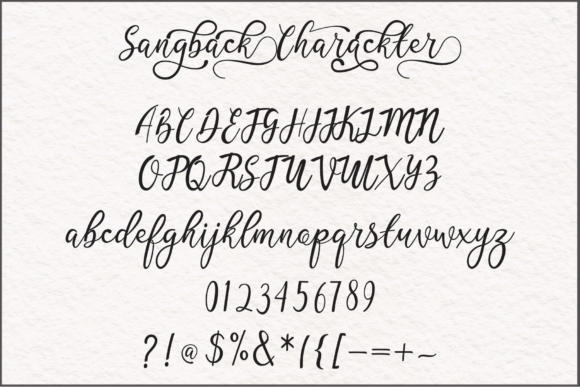 Sangback Charackter
ABCDEFGHIJKLMN
OPQRSTUVWXYZ
abcdefghijklmnopqrstuvwxyz
0123456789
?!@$%&*({[-=+~